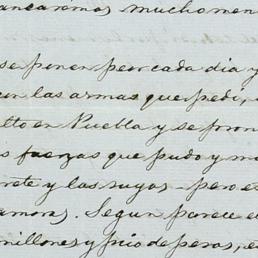 ancaramos mucho men
se ponen peor cada dia y
en las armas que pedi,
lto en Puebla y se pron
s fuerzas que pudo y m
rete y las suyas - pero es
amora. Segun parece e
millones y pico de pesos, e